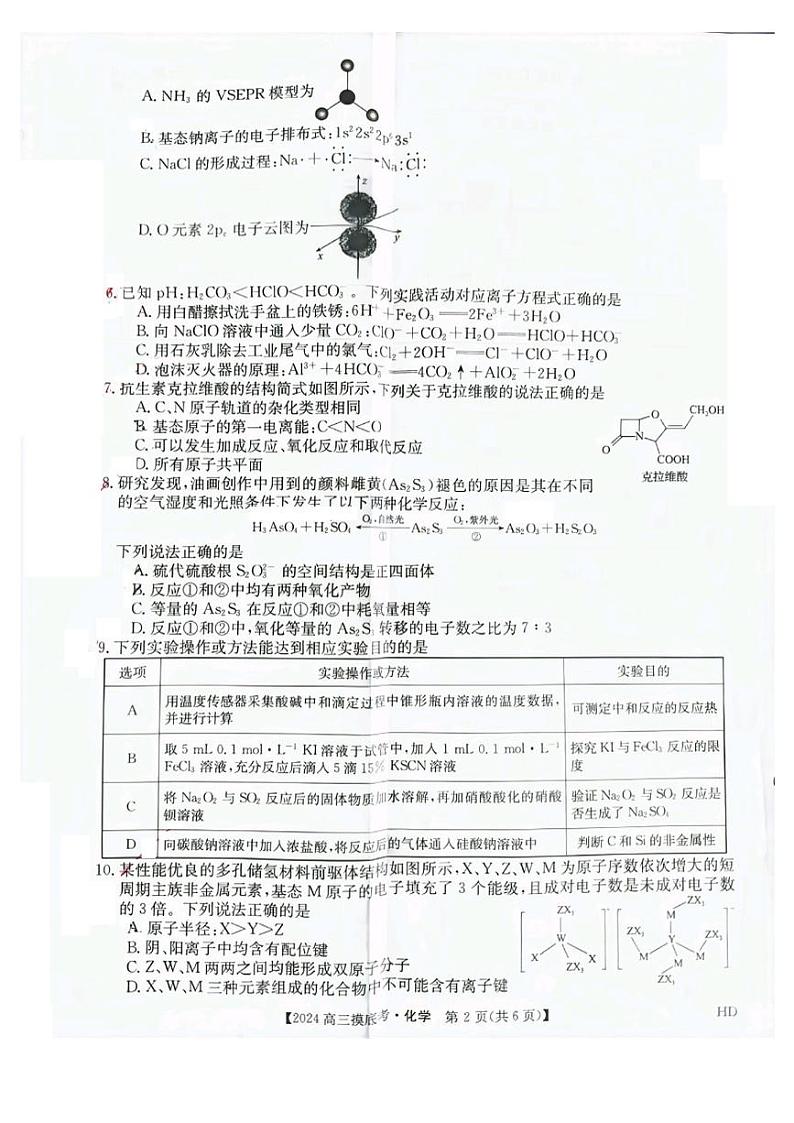 A. NH₃ 的 VSEPR 模型为
B. 基态钠离子的电子排布式:1s²2s²2p⁶3s¹
C. NaCl 的形成过程:Na·+·Cl:⟶Na:Cl:
z
D. O 元素 2p_z 电子云图为
x
y
6. 已知 pH:H₂CO₃<HClO<HCO₃⁻。下列实践活动对应离子方程式正确的是
A. 用白醋擦拭洗手盆上的铁锈:6H⁺+Fe₂O₃══2Fe³⁺+3H₂O
B. 向 NaClO 溶液中通入少量 CO₂:ClO⁻+CO₂+H₂O══HClO+HCO₃⁻
C. 用石灰乳除去工业尾气中的氯气:Cl₂+2OH⁻══Cl⁻+ClO⁻+H₂O
D. 泡沫灭火器的原理:Al³⁺+4HCO₃⁻══4CO₂↑+AlO₂⁻+2H₂O
7. 抗生素克拉维酸的结构简式如图所示,下列关于克拉维酸的说法正确的是
A. C、N 原子轨道的杂化类型相同
B. 基态原子的第一电离能:C<N<O
C. 可以发生加成反应、氧化反应和取代反应
D. 所有原子共平面
O
CH₂OH
N
O
COOH
克拉维酸
8. 研究发现,油画创作中用到的颜料雌黄(As₂S₃)褪色的原因是其在不同
的空气湿度和光照条件下发生了以下两种化学反应:
H₃AsO₄+H₂SO₄ ⟵(O₂,自然光 ①) As₂S₃ (O₂,紫外光 ②)⟶ As₂O₃+H₂S₂O₃
下列说法正确的是
A. 硫代硫酸根 S₂O₃²⁻ 的空间结构是正四面体
B. 反应①和②中均有两种氧化产物
C. 等量的 As₂S₃ 在反应①和②中耗氧量相等
D. 反应①和②中,氧化等量的 As₂S₃ 转移的电子数之比为 7∶3
9. 下列实验操作或方法能达到相应实验目的的是
选项 实验操作或方法 实验目的
A 用温度传感器采集酸碱中和滴定过程中锥形瓶内溶液的温度数据,
并进行计算 可测定中和反应的反应热
B 取 5 mL 0.1 mol·L⁻¹ KI 溶液于试管中,加入 1 mL 0.1 mol·L⁻¹ 探究 KI 与 FeCl₃ 反应的限
FeCl₃ 溶液,充分反应后滴入 5 滴 15% KSCN 溶液 度
C 将 Na₂O₂ 与 SO₂ 反应后的固体物质加水溶解,再加硝酸酸化的硝酸 验证 Na₂O₂ 与 SO₂ 反应是
钡溶液 否生成了 Na₂SO₄
D 向碳酸钠溶液中加入浓盐酸,将反应后的气体通入硅酸钠溶液中 判断 C 和 Si 的非金属性
10. 某性能优良的多孔储氢材料前驱体结构如图所示,X、Y、Z、W、M 为原子序数依次增大的短
周期主族非金属元素,基态 M 原子的电子填充了 3 个能级,且成对电子数是未成对电子数
的 3 倍。下列说法正确的是
A. 原子半径:X>Y>Z
B. 阴、阳离子中均含有配位键
C. Z、W、M 两两之间均能形成双原子分子
D. X、W、M 三种元素组成的化合物中不可能含有离子键
ZX₃
W
X
ZX₃
X
ZX₃
M
ZX₃
Y
ZX₃
M
M
M
ZX₃
【2024 高三摸底考·化学 第 2 页(共 6 页)】
HD